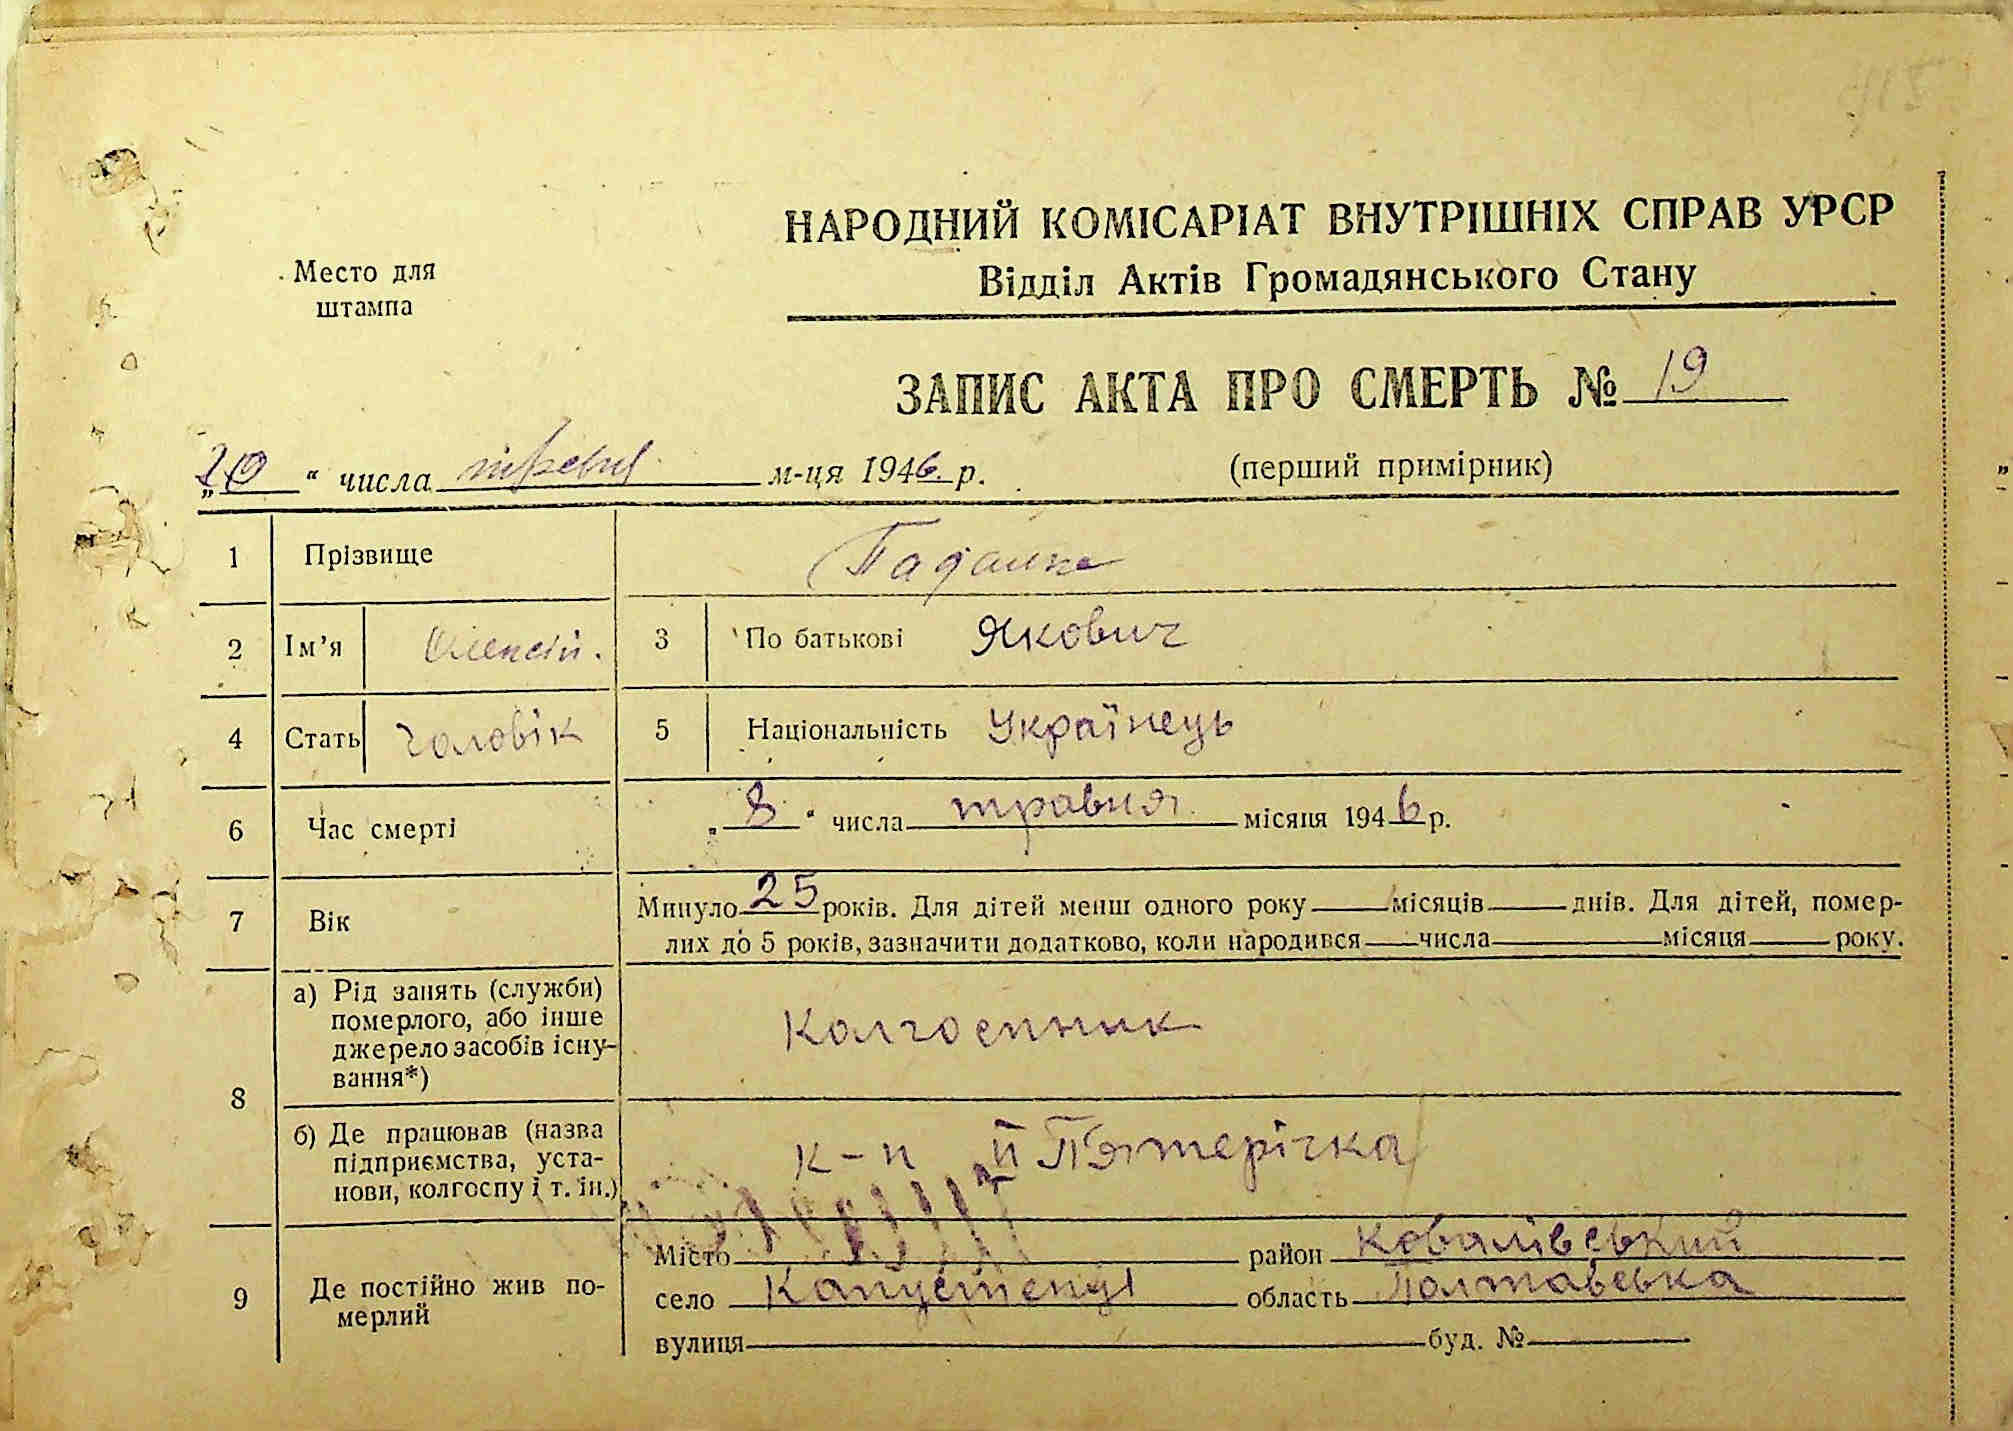 415
НАРОДНИЙ КОМІСАРІАТ ВНУТРІШНІХ СПРАВ УРСР
Відділ Актів Громадянського Стану
Место для
штампа
ЗАПИС АКТА ПРО СМЕРТЬ № 19
„20“ числа травня м-ця 1946 р.
(перший примірник)
1 Прізвище Гадалка
2 Ім’я Олексій. 3 По батькові Якович
4 Стать Чоловік 5 Національність Українець
6 Час смерті „8“ числа травня місяця 1946 р.
7 Вік Минуло 25 років. Для дітей менш одного року місяців днів. Для дітей, помер-
лих до 5 років, зазначити додатково, коли народився числа місяця року.
8 а) Рід занять (служби)
померлого, або інше
джерело засобів існу-
вання*)
Колгоспник
б) Де працював (назва
підприємства, уста-
нови, колгоспу і т. ін.)
к-п „Пятерічка
9 Де постійно жив по-
мерлий
Місто район Ковалівський
село Капустенці область Полтавська
вулиця буд. №